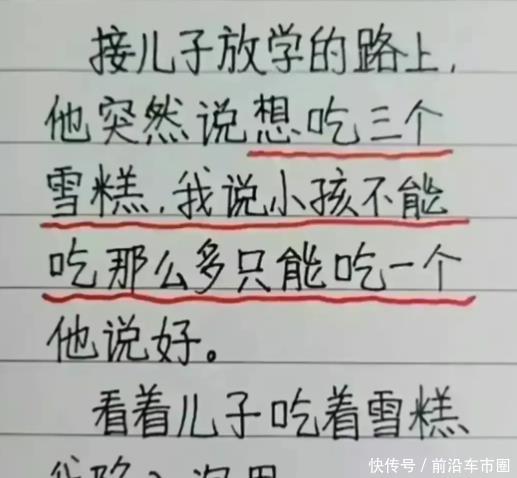 接儿子放学的路上,
他突然说想吃三个
雪糕,我说小孩不能
吃那么多只能吃一个
他说好。
看着儿子吃着雪糕
快传号/前沿车市圈